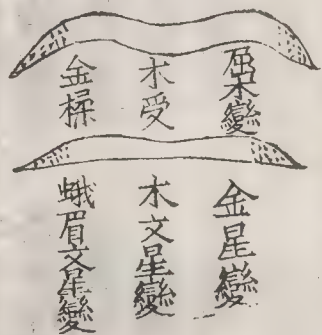 屈木變
木受
金探
金星變
木文星變
蛾眉文星變